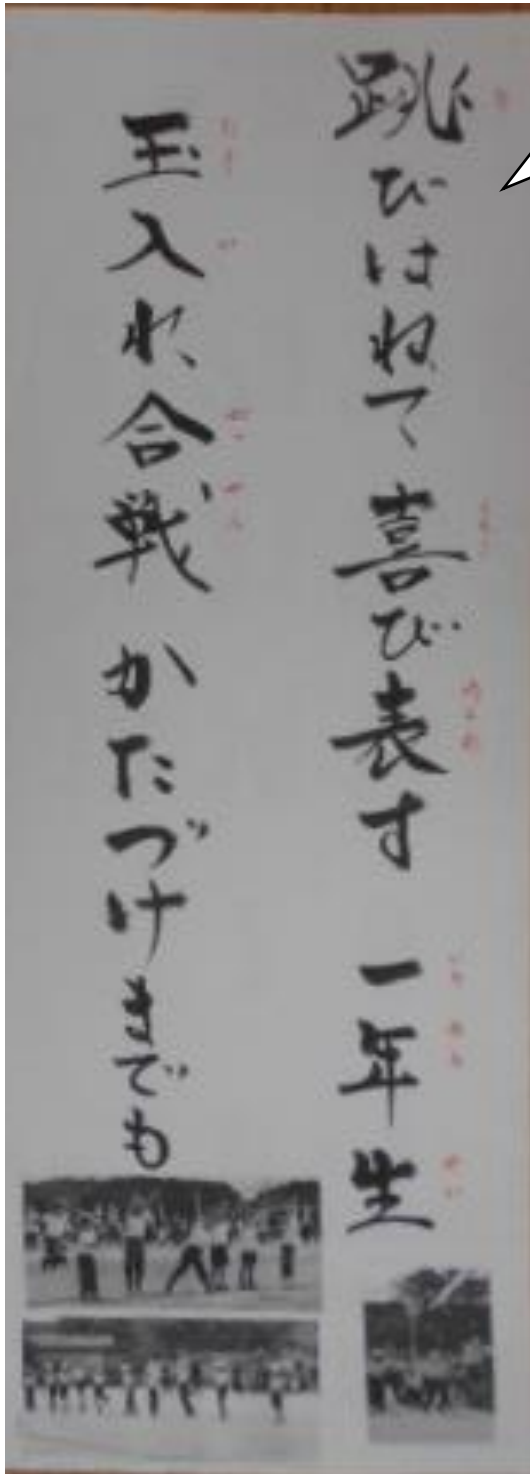 跳びはねて 喜び表す 一年生
玉入れ合戦 かたづけまでも